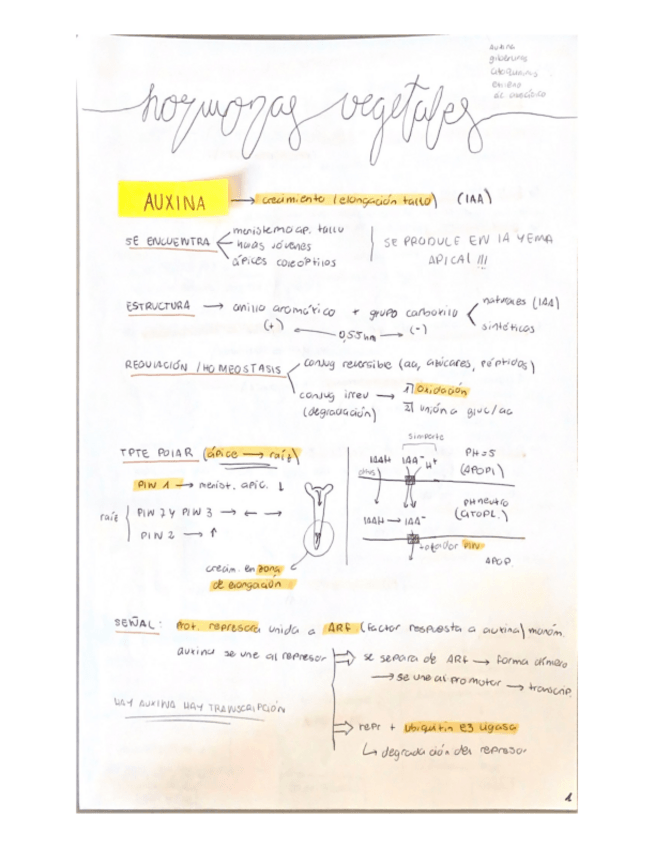 auxina
giberelinas
citoquininas
etileno
ác. abscísico
hormonas vegetales
AUXINA → crecimiento (elongación tallo) (IAA)
SE ENCUENTRA
meristemo ap. tallo
hojas jóvenes
ápices coleóptilos
SE PRODUCE EN LA YEMA
APICAL !!!
ESTRUCTURA → anillo aromático + grupo carboxilo
naturales (IAA)
sintéticos
(+) ← 0,55nm → (-)
REGULACIÓN / HOMEOSTASIS
conjug reversible (aa, azúcares, péptidos)
conjug irrev → 1) Oxidación
(degradación) 2) unión a gluc/aa
TPTE POLAR (ápice → raíz)
PIN 1 → merist. apic. ↓
raíz
PIN 2 y PIN 3 → ← →
PIN 2 → ↑
crecim. en zona
de elongación
simporte
IAAH IAA⁻ H⁺
PH=5
(APOPL)
difus
PH neutro
(CITOPL.)
IAAH → IAA⁻
PIN
APOP.
SEÑAL: Prot. represora unida a ARF (factor respuesta a auxina) monóm.
auxina se une al represor ⇒ se separa de ARF → forma dímero
→ se une al promotor → transcrip.
HAY AUXINA HAY TRANSCRIPCIÓN
⇒ repr + ubiquitin E3 ligasa
↳ degradación del represor
1